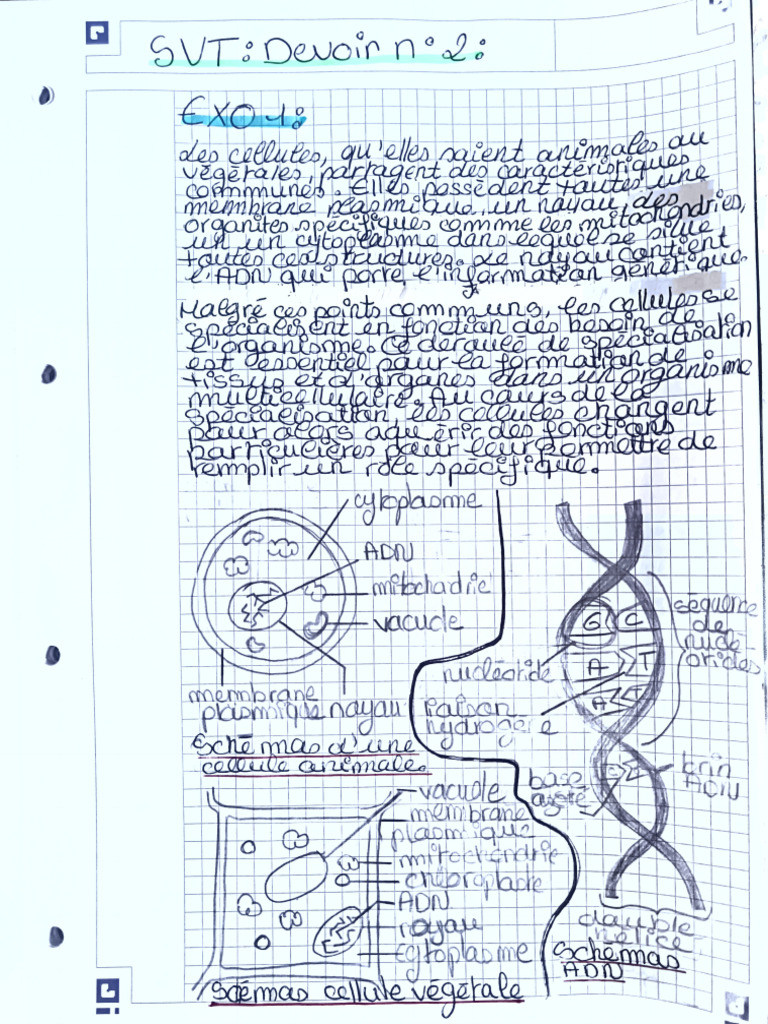 SVT: Devoir n°2:
EXO 1:
Les cellules, qu'elles soient animales ou
végétales, partagent des caractéristiques
communes. Elles possèdent toutes une
membrane plasmique, un noyau, des
organites spécifiques comme les mitochondries,
un un cytoplasme dans lequel se situe
toutes ces structures. Le noyau contient
l'ADN qui porte l'information génétique.
Malgré ces points communs, les cellules se
spécialisent en fonction des besoin de
l'organisme. Ce de de spécialisation
est essentiel pour la formation de
tissus et d'organes dans un organisme
multicellulaire. Au cours de la
spécialisation, les cellules changent
pour alors aquérir des fonctions
particulières pour leur permettre de
remplir un rôle spécifique.
cytoplasme
ADN
mitochadrie
vacuole
membrane
plasmique
noyau
Schémas d'une
cellule animale.
G C
A T
A T
séquence
de
nucléotide
liaison
hydrogène
base
azoté
brin
ADN
double
hélice
Schémas
ADN
vacuole
membrane
plasmique
mitochondrie
chloroplaste
ADN
noyau
cytoplasme
Scémas cellule végétale